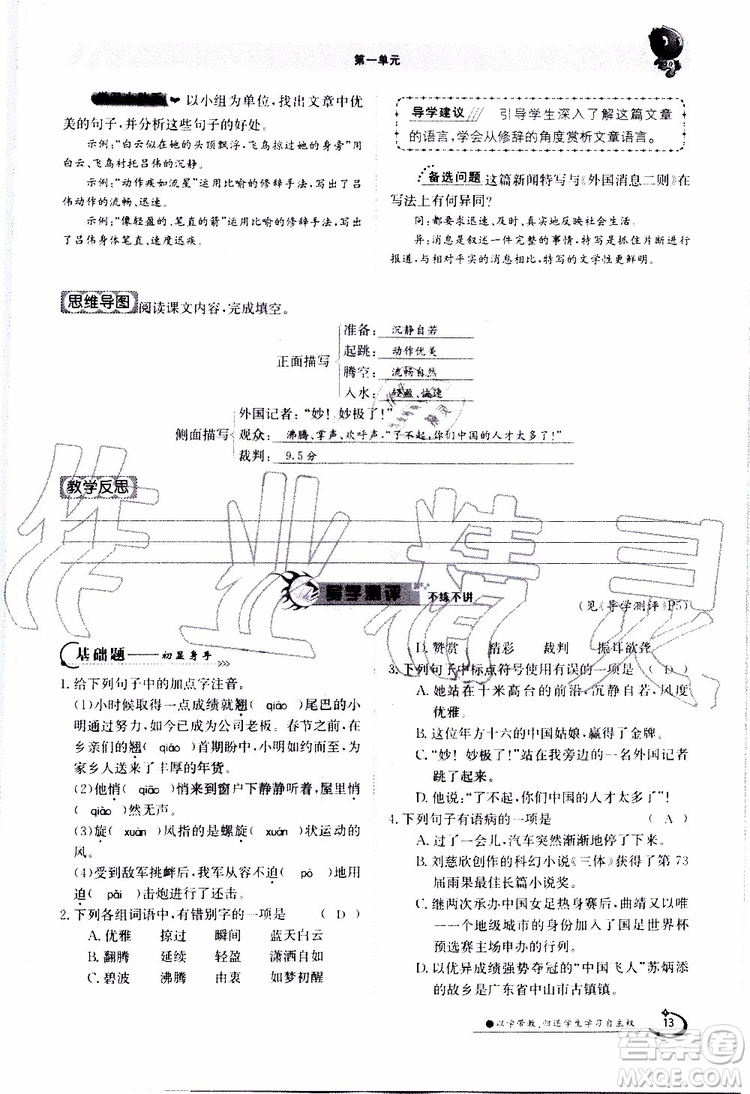 第一单元
以小组为单位,找出文章中优
美的句子,并分析这些句子的好处。
示例:“白云似在她的头顶飘浮,飞鸟掠过她的身旁”用
白云、飞鸟衬托吕伟的沉静。
示例:“动作疾如流星”运用比喻的修辞手法,写出了吕
伟动作的流畅、迅速。
示例:“像轻盈的、笔直的箭”运用比喻的修辞手法,写出
了吕伟身体笔直、迅速迅疾。
导学建议 引导学生深入了解这篇文章
的语言,学会从修辞的角度赏析文章语言。
备选问题 这篇新闻特写与《外国消息二则》在
写法上有何异同?
同:都要求迅速、及时、真实地反映社会生活。
异:消息是叙述一件完整的事情,特写是抓住片断进行
报道,与相对平实的消息相比,特写的文学性更鲜明。
思维导图 阅读课文内容,完成填空。
正面描写
准备: 沉静自若
起跳: 动作优美
腾空: 流畅自然
入水: 轻盈、迅速
侧面描写
外国记者:“妙!妙极了!”
观众: 沸腾、掌声、欢呼声,“了不起,你们中国的人才太多了!”
裁判: 9.5分
教学反思
导学测评 不练不讲
(见《导学测评》P5)
基础题——初显身手
1. 给下列句子中的加点字注音。
(1)小时候取得一点成绩就翘(qiào)尾巴的小
明,如今已成为公司老板。春节前夕,在
乡亲们的翘(qiáo)首期盼中,小明如约而至,为
家乡人送来了丰厚的年货。
(2)他悄(qiāo)悄来到窗户下静静听着,里面悄
(qiǎo)然无声。
(3)旋(xuàn)风指的是螺旋(xuán)状运动的
风。
(4)受到敌军挑衅后,我军不得不迫(pò)不及待
动用迫(pǎi)击炮。
2. 下列各组词语中,有错别字的一项是 ( D )
A. 优雅 掠过 瞬间 蓝天白云
B. 翻腾 延续 轻盈 潇洒自如
C. 碧波 沸腾 由衷 如梦初醒
D. 赞赏 精彩 裁判 振耳欲聋
3. 下列句子中标点符号使用有误的一项是 ( D )
A. 她站在十米高台的前沿,沉静自若,风度
优雅。
B. 这位年方十六的中国姑娘,赢得了金牌。
C. “妙!妙极了!”站在我旁边的一名外国记者
跳了起来。
D. 他说:“了不起,你们中国的人才太多了”!
4. 下列句子有语病的一项是 ( A )
A. 过了一会儿,汽车突然渐渐地放慢了速度。
B. 刘慈欣创作的科幻小说《三体》获得了第73
届雨果奖最佳长篇小说奖。
C. 继两次承办中国女足热身赛后,曲靖又以唯
一一个地级城市的身份加入了国足世界杯
预选赛主场申办的行列。
D. 以优异成绩强势夺冠的“中国飞人”苏炳添
的故乡是广东省中山市古镇镇。
●以学带教,归还学生学习自主权
13
作业精灵
答案圈
MXQE.COM